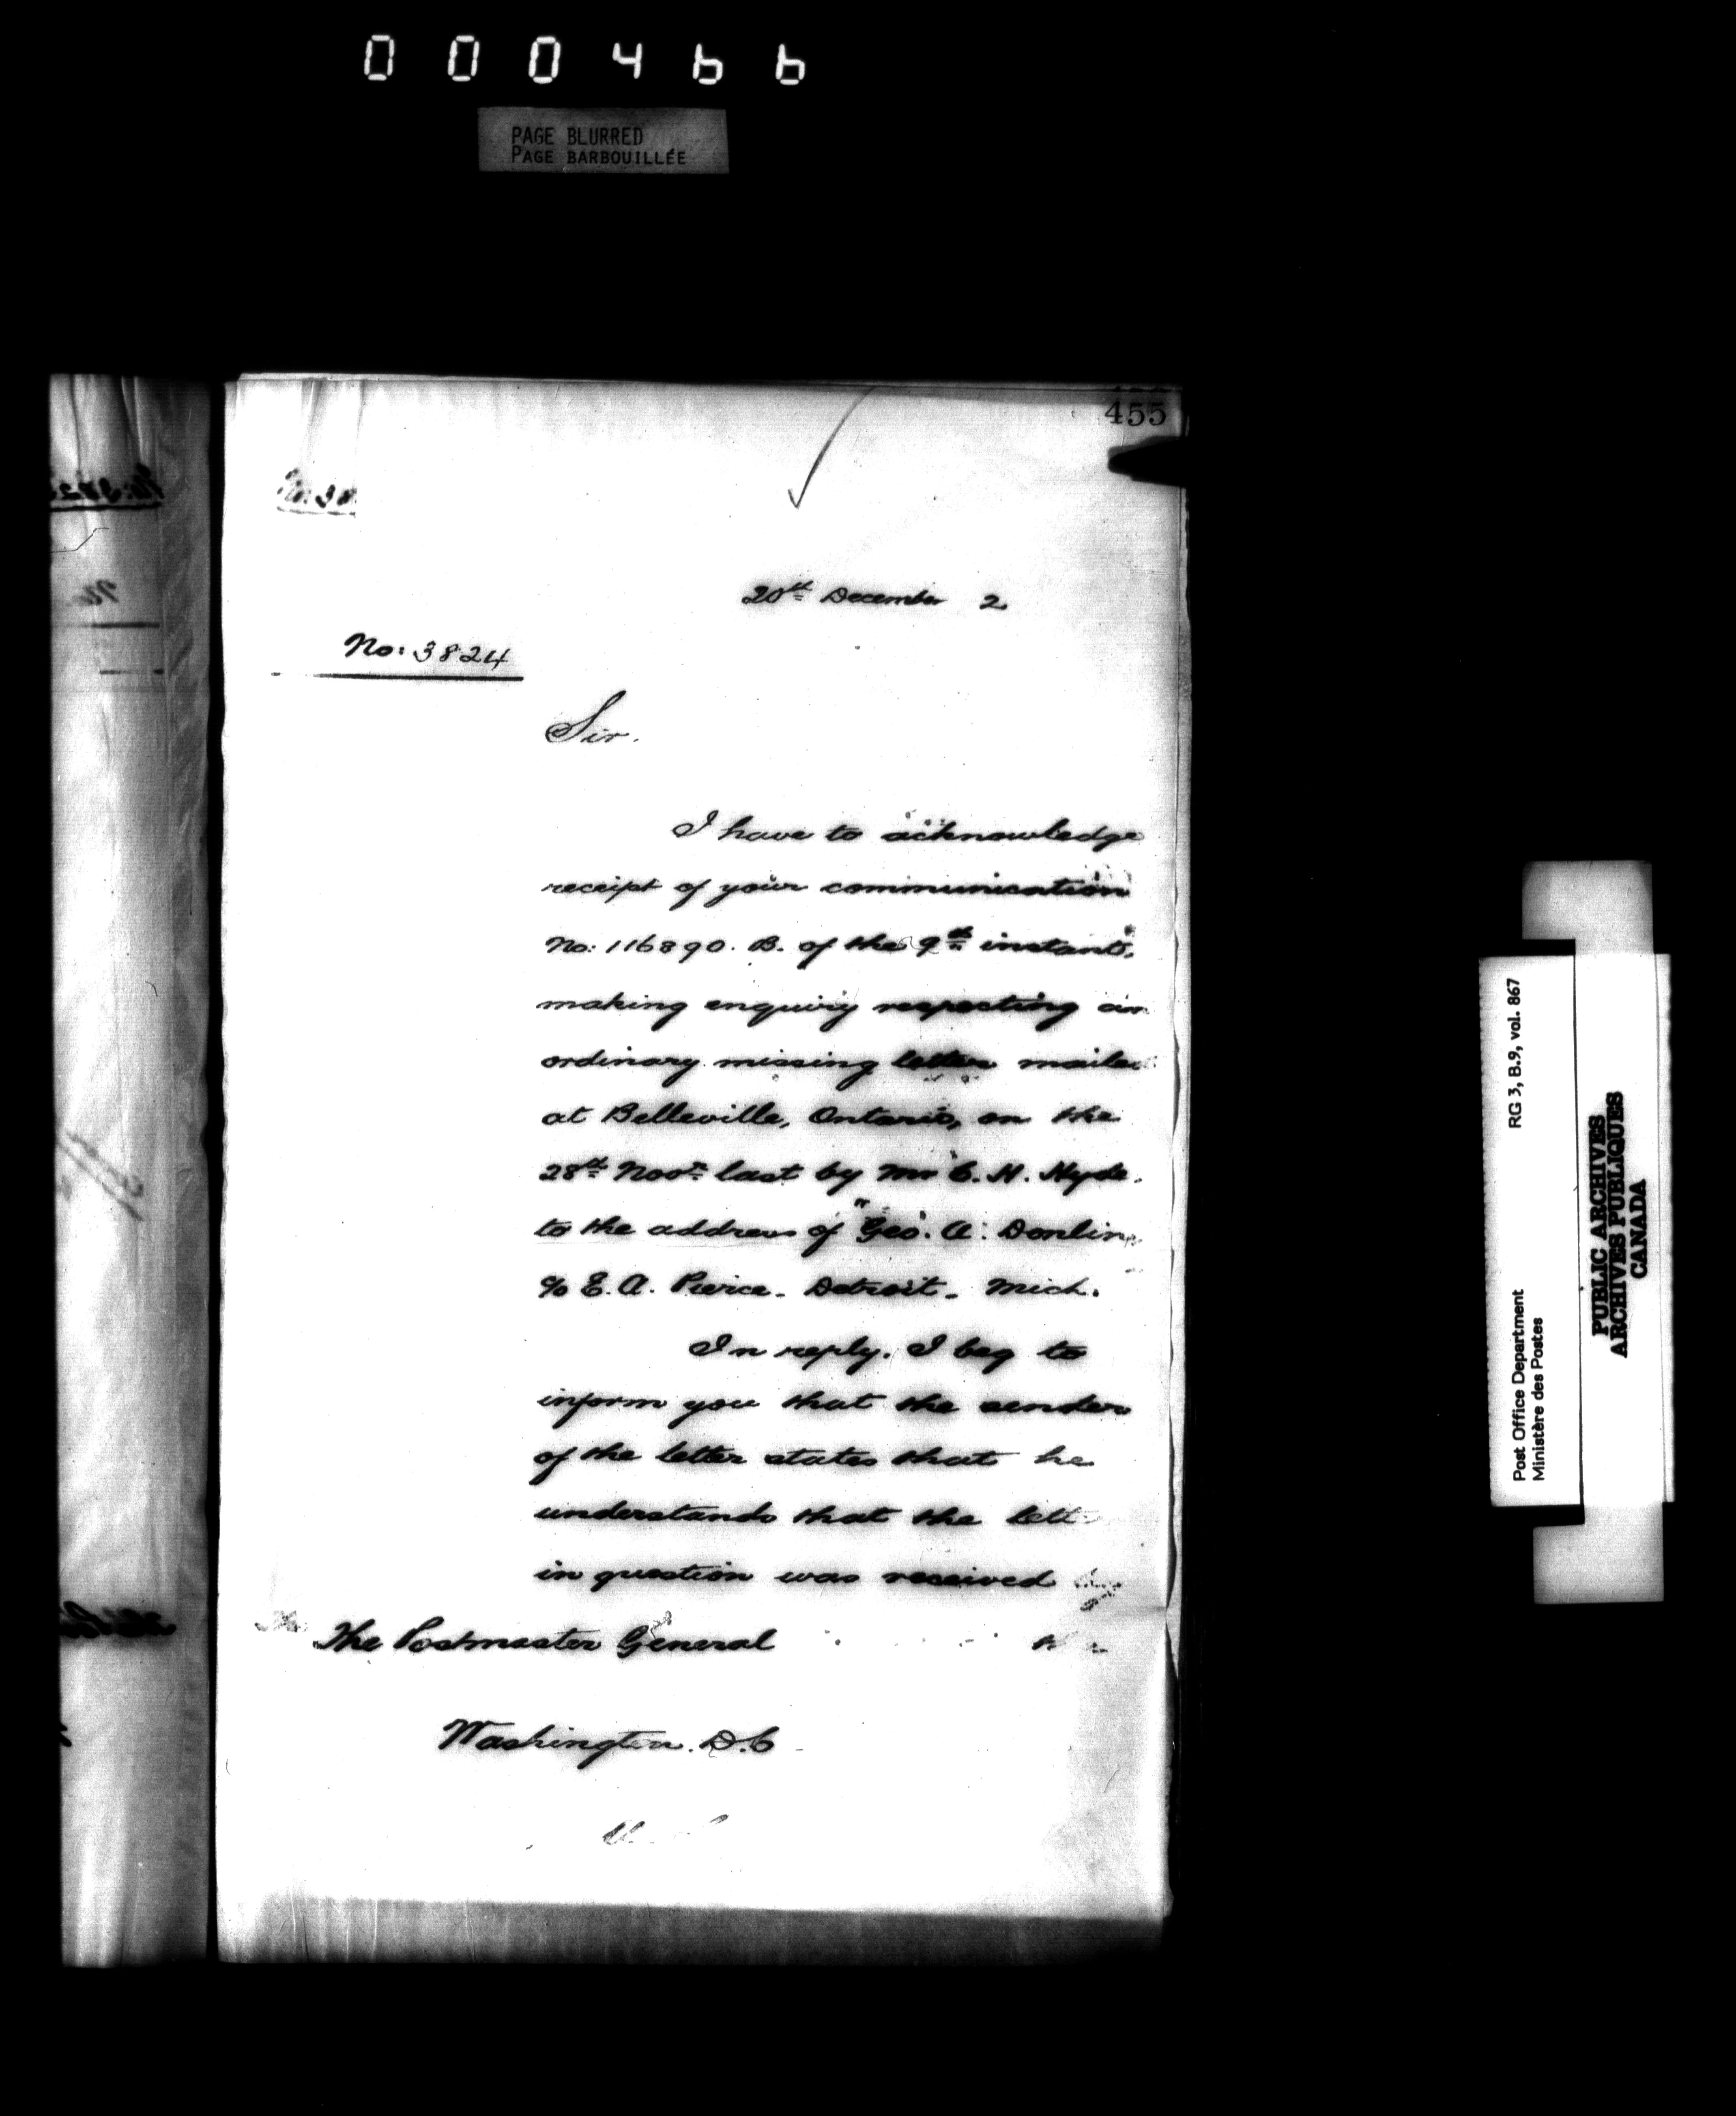 000466
PAGE BLURRED
PAGE BARBOUILLÉE
455
No: 38
20th December 2
No: 3824
Sir.
I have to acknowledge
receipt of your communication
No: 116890. B. of the 9th instant,
making enquiry respecting an
ordinary missing letter mailed
at Belleville, Ontario, on the
28th Novr last by Mr C. H. Hyde.
to the address of "Geo. A. Donlin
c/o E. A. Pierce - Detroit - Mich.
In reply. I beg to
inform you that the sender
of the letter states that he
understands that the lett
in question was received by
The Postmaster General
Washington. D.C
RG 3, B.9, vol. 867
Post Office Department
Ministère des Postes
PUBLIC ARCHIVES
ARCHIVES PUBLIQUES
CANADA